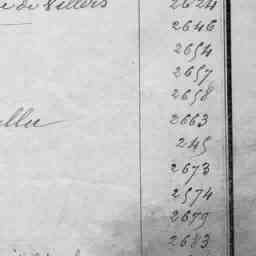 de Villers 2624
2646
2654
2657
2658
2663
245
2673
2574
2679
2683